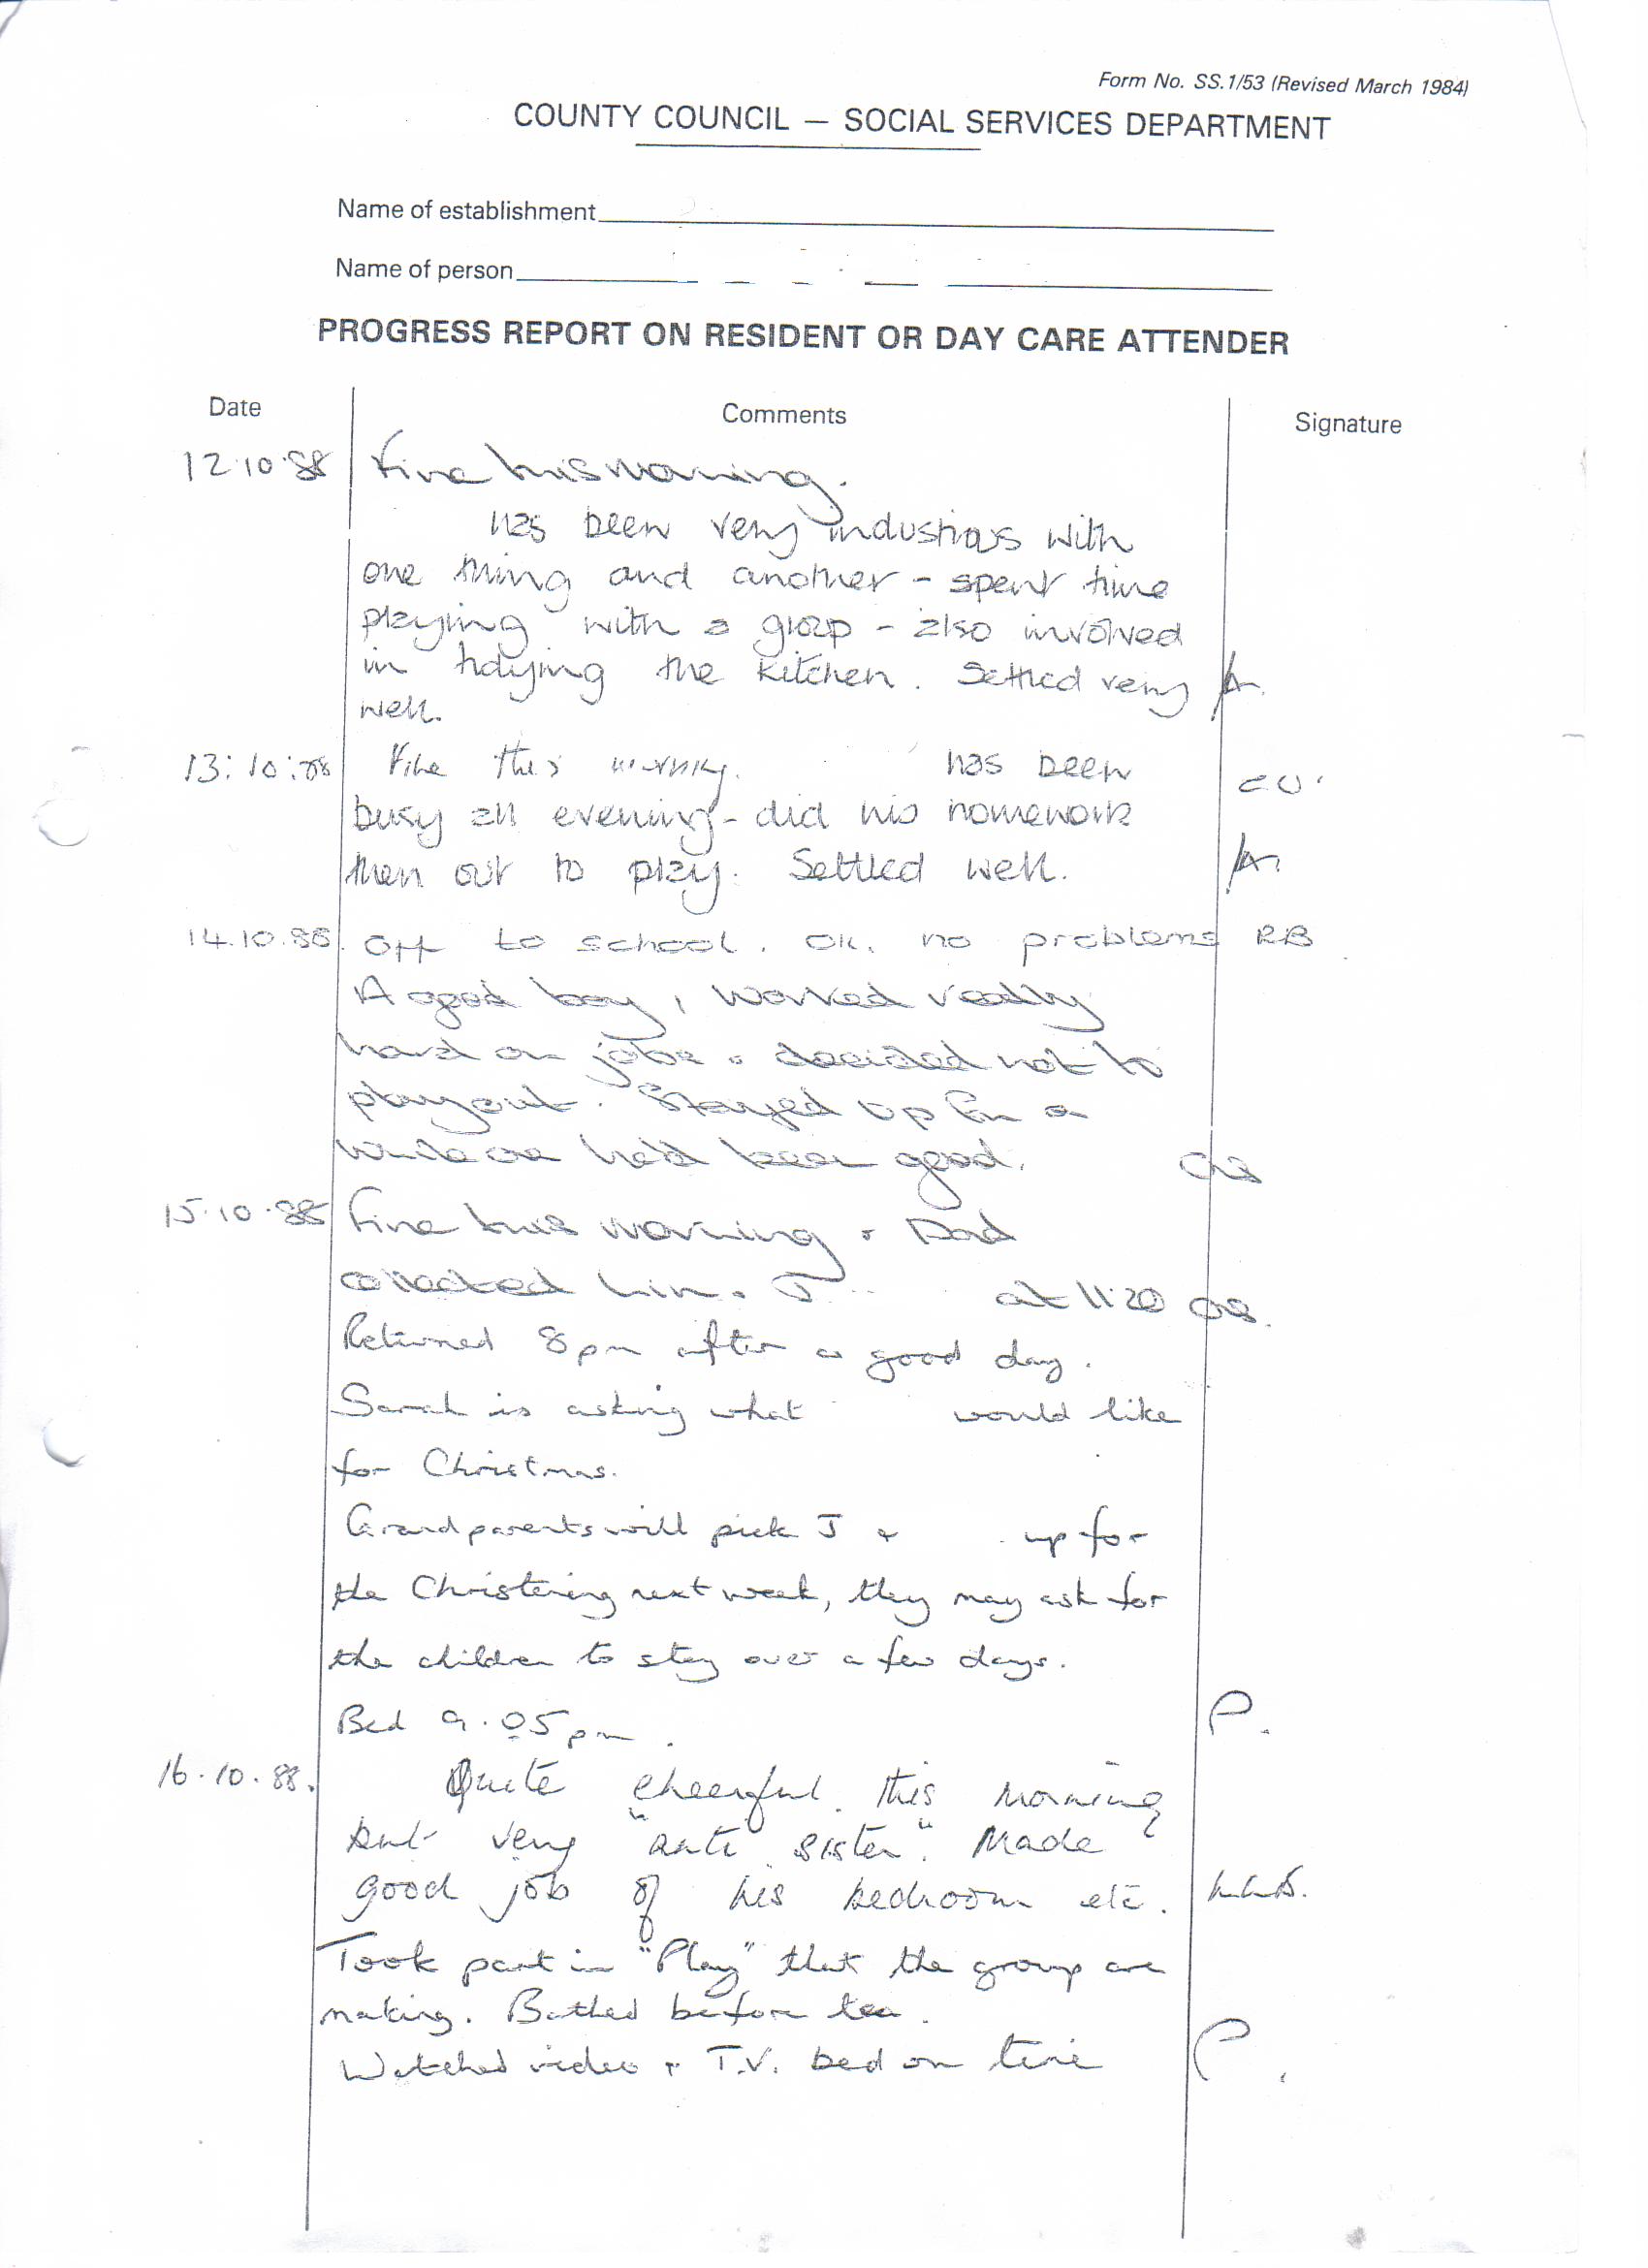 Form No. SS.1/53 (Revised March 1984)
COUNTY COUNCIL — SOCIAL SERVICES DEPARTMENT
Name of establishment
Name of person
PROGRESS REPORT ON RESIDENT OR DAY CARE ATTENDER
Date Comments Signature
12.10.88 Fine this morning.
has been very industrious with
one thing and another - spent time
playing with a group - also involved
in tidying the kitchen. Settled very
well.
13:10:88 Fine this morning. has been
busy all evening - did his homework
then out to play. Settled well.
14.10.88. Off to school. OK. no problems RB
A good boy, worked really
hard on jobs & decided not to
play out. Stayed up for a
while as he'd been good.
15.10.88 Fine this morning & Dad
collected him & J at 11.20
Returned 8pm after a good day.
Sarah is asking what would like
for Christmas.
Grandparents will pick J & up for
the Christening next week, they may ask for
the children to stay over a few days.
Bed 9.05pm. P.
16.10.88. Quite cheerful this morning
but very "anti sister". Made
good job of his bedroom etc.
Took part in "Play" that the group are
making. Bathed before tea.
Watched video & T.V. bed on time P.